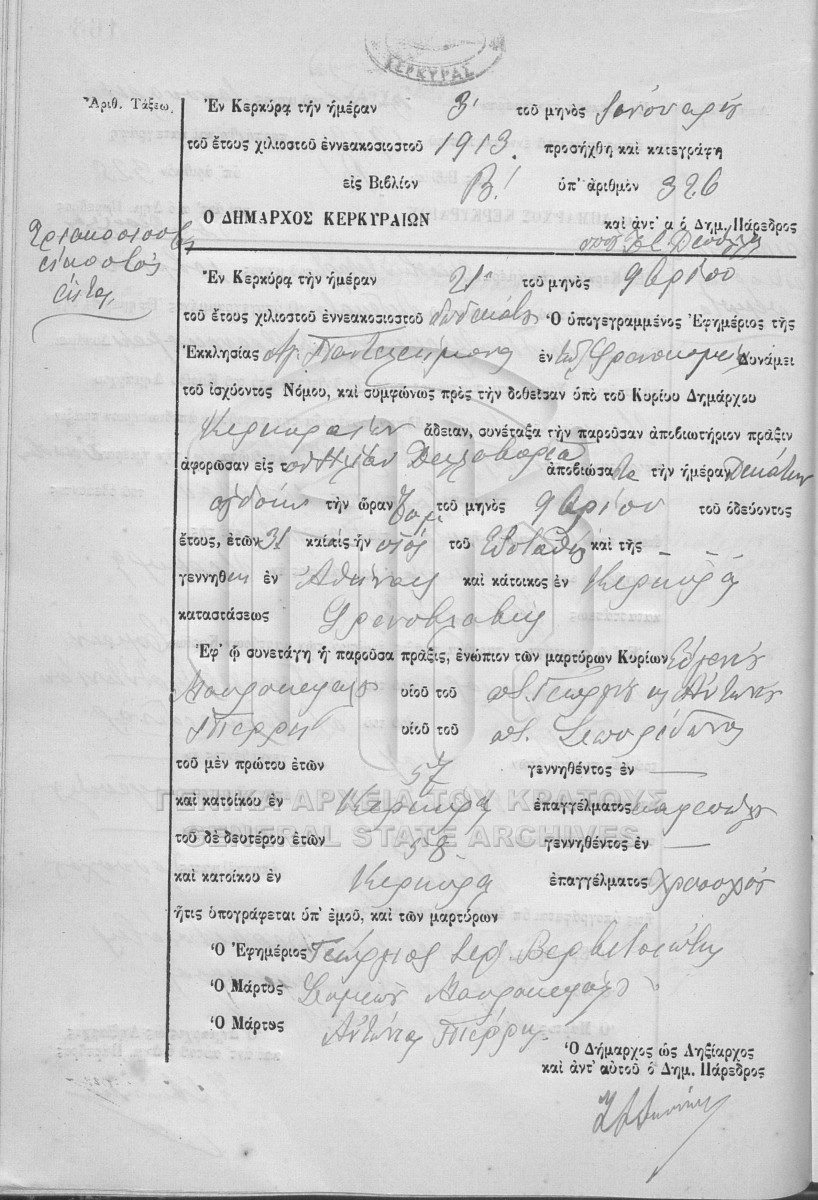 ΚΕΡΚΥΡΑΣ
Ἀριθ. Τάξεω.
Ἐν Κερκύρᾳ τὴν ἡμέραν 3 τοῦ μηνὸς Ἰανουαρίου
τοῦ ἔτους χιλιοστοῦ ἐννεακοσιοστοῦ 1913. προσήχθη καὶ κατεγράφη
εἰς Βιβλίον Β! ὑπ' ἀριθμὸν 326
Ὁ ΔΗΜΑΡΧΟΣ ΚΕΡΚΥΡΑΙΩΝ καὶ ἀντ' α ὁ Δημ. Πάρεδρος
Τριακοσιοστὸς
εἰκοστὸς
ἕκτος
Ἐν Κερκύρᾳ τὴν ἡμέραν 21 τοῦ μηνὸς 9βρίου
τοῦ ἔτους χιλιοστοῦ ἐννεακοσιοστοῦ δωδεκάτου Ὁ ὑπογεγραμμένος Ἐφημέριος τῆς
Ἐκκλησίας Ἁγ. Παντελεήμονος ἐν τῷ Φρενοκομείῳ Δυνάμει
τοῦ ἰσχύοντος Νόμου, καὶ συμφώνως πρὸς τὴν δοθεῖσαν ὑπὸ τοῦ Κυρίου Δημάρχου
Κερκυραίων ἄδειαν, συνέταξα τὴν παροῦσαν ἀποβιωτήριον πρᾶξιν
ἀφορῶσαν εἰς τὸν Ἠλίαν ἀποβιώσαντα τὴν ἡμέραν Δεκάτην
ὀγδόην τὴν ὥραν 7 π.μ. τοῦ μηνὸς 9βρίου τοῦ ὁδεύοντος
ἔτους, ἐτῶν 31 καὶ εἰς ἦν υἱὸς τοῦ Εὐσταθίου καὶ τῆς - -
γεννηθεὶς ἐν Ἀθήναις καὶ κάτοικος ἐν Κερκύρᾳ
καταστάσεως Φρενοβλαβὴς
Ἐφ' ᾧ συνετάγη ἡ παροῦσα πρᾶξις, ἐνώπιον τῶν μαρτύρων Κυρίων
Μαυροκεφάλου υἱοῦ τοῦ ποτ. Γεωργίου κ Ἀντωνίου
Πιέρρη υἱοῦ τοῦ ποτ. Σπυρίδωνος
τοῦ μὲν πρώτου ἐτῶν 57 γεννηθέντος ἐν —
καὶ κατοίκου ἐν Κερκύρᾳ ἐπαγγέλματος
τοῦ δὲ δευτέρου ἐτῶν 58 γεννηθέντος ἐν —
καὶ κατοίκου ἐν Κερκύρᾳ ἐπαγγέλματος Χρυσοχόος
ἥτις ὑπογράφεται ὑπ' ἐμοῦ, καὶ τῶν μαρτύρων
Ὁ Ἐφημέριος Γεώργιος Ἱερ. Βερβιτσιώτης
Ὁ Μάρτυς Μαυροκέφαλος
Ὁ Μάρτυς Ἀντώνιος Πιέρρης
Ὁ Δήμαρχος ὡς Ληξίαρχος
καὶ ἀντ' αὐτοῦ ὁ Δημ. Πάρεδρος
ΓΕΝΙΚΑ ΑΡΧΕΙΑ ΤΟΥ ΚΡΑΤΟΥΣ
GENERAL STATE ARCHIVES